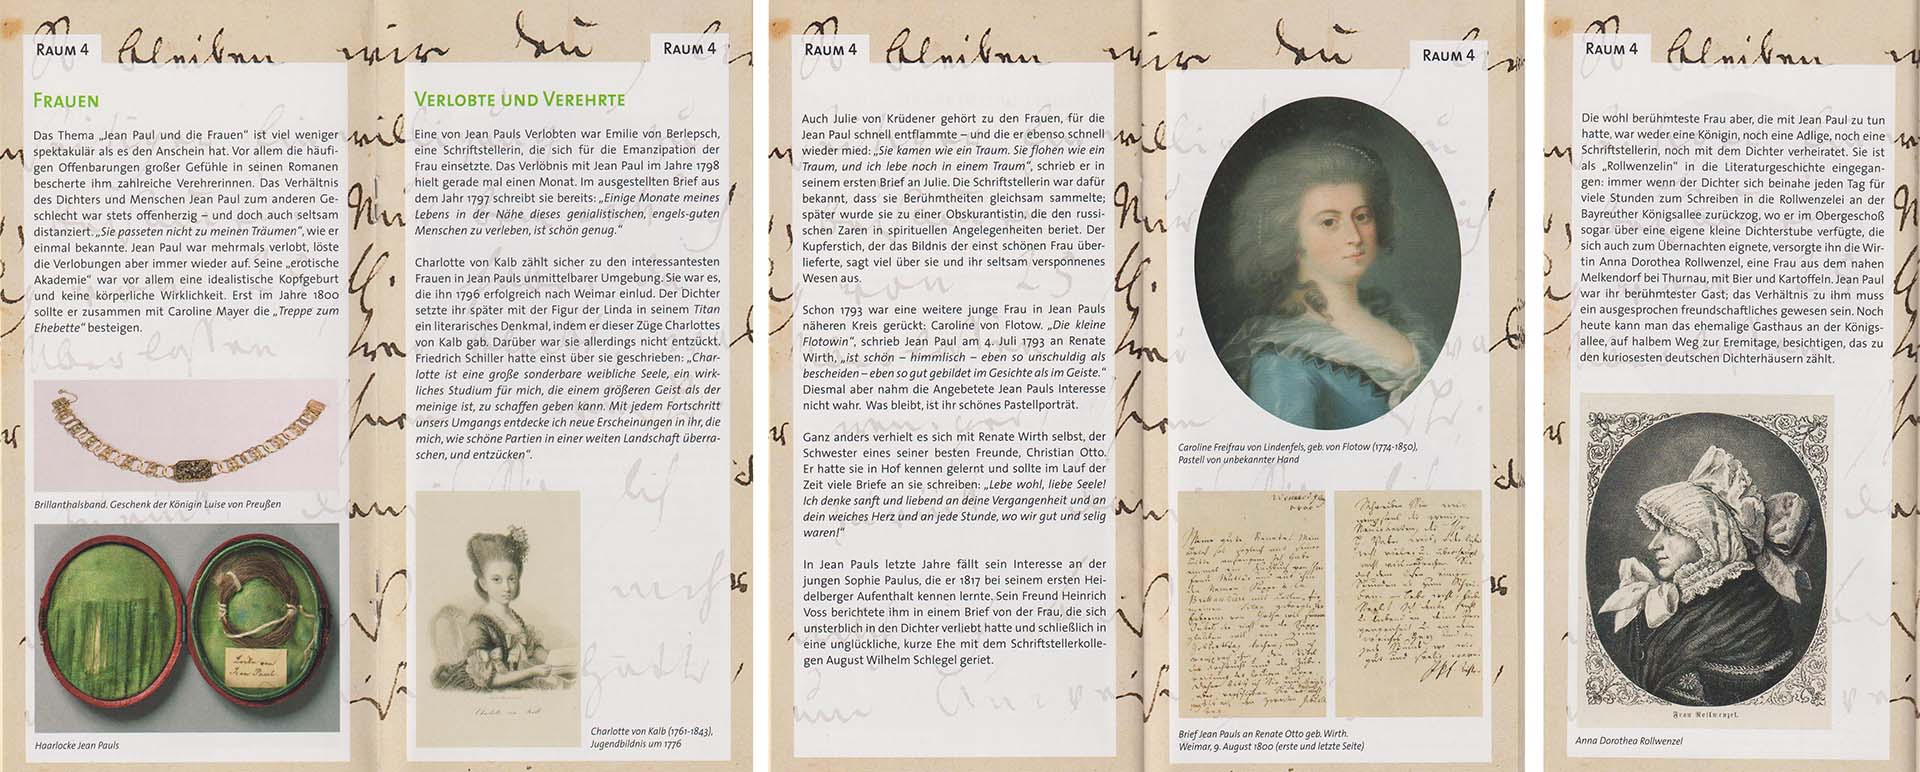 RAUM 4
FRAUEN
Das Thema „Jean Paul und die Frauen“ ist viel weniger
spektakulär als es den Anschein hat. Vor allem die häufi-
gen Offenbarungen großer Gefühle in seinen Romanen
bescherte ihm zahlreiche Verehrerinnen. Das Verhältnis
des Dichters und Menschen Jean Paul zum anderen Ge-
schlecht war stets offenherzig – und doch auch seltsam
distanziert. „Sie passeten nicht zu meinen Träumen“, wie er
einmal bekannte. Jean Paul war mehrmals verlobt, löste
die Verlobungen aber immer wieder auf. Seine „erotische
Akademie“ war vor allem eine idealistische Kopfgeburt
und keine körperliche Wirklichkeit. Erst im Jahre 1800
sollte er zusammen mit Caroline Mayer die „Treppe zum
Ehebette“ besteigen.
Brillanthalsband. Geschenk der Königin Luise von Preußen
Locke von
Jean Paul
Haarlocke Jean Pauls
RAUM 4
VERLOBTE UND VEREHRTE
Eine von Jean Pauls Verlobten war Emilie von Berlepsch,
eine Schriftstellerin, die sich für die Emanzipation der
Frau einsetzte. Das Verlöbnis mit Jean Paul im Jahre 1798
hielt gerade mal einen Monat. Im ausgestellten Brief aus
dem Jahr 1797 schreibt sie bereits: „Einige Monate meines
Lebens in der Nähe dieses genialistischen, engels-guten
Menschen zu verleben, ist schön genug.“
Charlotte von Kalb zählt sicher zu den interessantesten
Frauen in Jean Pauls unmittelbarer Umgebung. Sie war es,
die ihn 1796 erfolgreich nach Weimar einlud. Der Dichter
setzte ihr später mit der Figur der Linda in seinem Titan
ein literarisches Denkmal, indem er dieser Züge Charlottes
von Kalb gab. Darüber war sie allerdings nicht entzückt.
Friedrich Schiller hatte einst über sie geschrieben: „Char-
lotte ist eine große sonderbare weibliche Seele, ein wirk-
liches Studium für mich, die einem größeren Geist als der
meinige ist, zu schaffen geben kann. Mit jedem Fortschritt
unsers Umgangs entdecke ich neue Erscheinungen in ihr, die
mich, wie schöne Partien in einer weiten Landschaft überra-
schen, und entzücken“.
Charlotte von Kalb
Charlotte von Kalb (1761-1843),
Jugendbildnis um 1776
bleiben wir du
RAUM 4
Auch Julie von Krüdener gehört zu den Frauen, für die
Jean Paul schnell entflammte – und die er ebenso schnell
wieder mied: „Sie kamen wie ein Traum. Sie flohen wie ein
Traum, und ich lebe noch in einem Traum“, schrieb er in
seinem ersten Brief an Julie. Die Schriftstellerin war dafür
bekannt, dass sie Berühmtheiten gleichsam sammelte;
später wurde sie zu einer Obskurantistin, die den russi-
schen Zaren in spirituellen Angelegenheiten beriet. Der
Kupferstich, der das Bildnis der einst schönen Frau über-
lieferte, sagt viel über sie und ihr seltsam versponnenes
Wesen aus.
Schon 1793 war eine weitere junge Frau in Jean Pauls
näheren Kreis gerückt: Caroline von Flotow. „Die kleine
Flotowin“, schrieb Jean Paul am 4. Juli 1793 an Renate
Wirth, „ist schön – himmlisch – eben so unschuldig als
bescheiden – eben so gut gebildet im Gesichte als im Geiste.“
Diesmal aber nahm die Angebetete Jean Pauls Interesse
nicht wahr. Was bleibt, ist ihr schönes Pastellporträt.
Ganz anders verhielt es sich mit Renate Wirth selbst, der
Schwester eines seiner besten Freunde, Christian Otto.
Er hatte sie in Hof kennen gelernt und sollte im Lauf der
Zeit viele Briefe an sie schreiben: „Lebe wohl, liebe Seele!
Ich denke sanft und liebend an deine Vergangenheit und an
dein weiches Herz und an jede Stunde, wo wir gut und selig
waren!“
In Jean Pauls letzte Jahre fällt sein Interesse an der
jungen Sophie Paulus, die er 1817 bei seinem ersten Hei-
delberger Aufenthalt kennen lernte. Sein Freund Heinrich
Voss berichtete ihm in einem Brief von der Frau, die sich
unsterblich in den Dichter verliebt hatte und schließlich in
eine unglückliche, kurze Ehe mit dem Schriftstellerkolle-
gen August Wilhelm Schlegel geriet.
bleiben wir du
RAUM 4
Caroline Freifrau von Lindenfels, geb. von Flotow (1774-1850),
Pastell von unbekannter Hand
Brief Jean Pauls an Renate Otto geb. Wirth.
Weimar, 9. August 1800 (erste und letzte Seite)
RAUM 4
bleiben
Die wohl berühmteste Frau aber, die mit Jean Paul zu tun
hatte, war weder eine Königin, noch eine Adlige, noch eine
Schriftstellerin, noch mit dem Dichter verheiratet. Sie ist
als „Rollwenzelin“ in die Literaturgeschichte eingegan-
gen: immer wenn der Dichter sich beinahe jeden Tag für
viele Stunden zum Schreiben in die Rollwenzelei an der
Bayreuther Königsallee zurückzog, wo er im Obergeschoß
sogar über eine eigene kleine Dichterstube verfügte, die
sich auch zum Übernachten eignete, versorgte ihn die Wir-
tin Anna Dorothea Rollwenzel, eine Frau aus dem nahen
Melkendorf bei Thurnau, mit Bier und Kartoffeln. Jean Paul
war ihr berühmtester Gast; das Verhältnis zu ihm muss
ein ausgesprochen freundschaftliches gewesen sein. Noch
heute kann man das ehemalige Gasthaus an der Königs-
allee, auf halbem Weg zur Eremitage, besichtigen, das zu
den kuriosesten deutschen Dichterhäusern zählt.
Frau Rollwenzel.
Anna Dorothea Rollwenzel